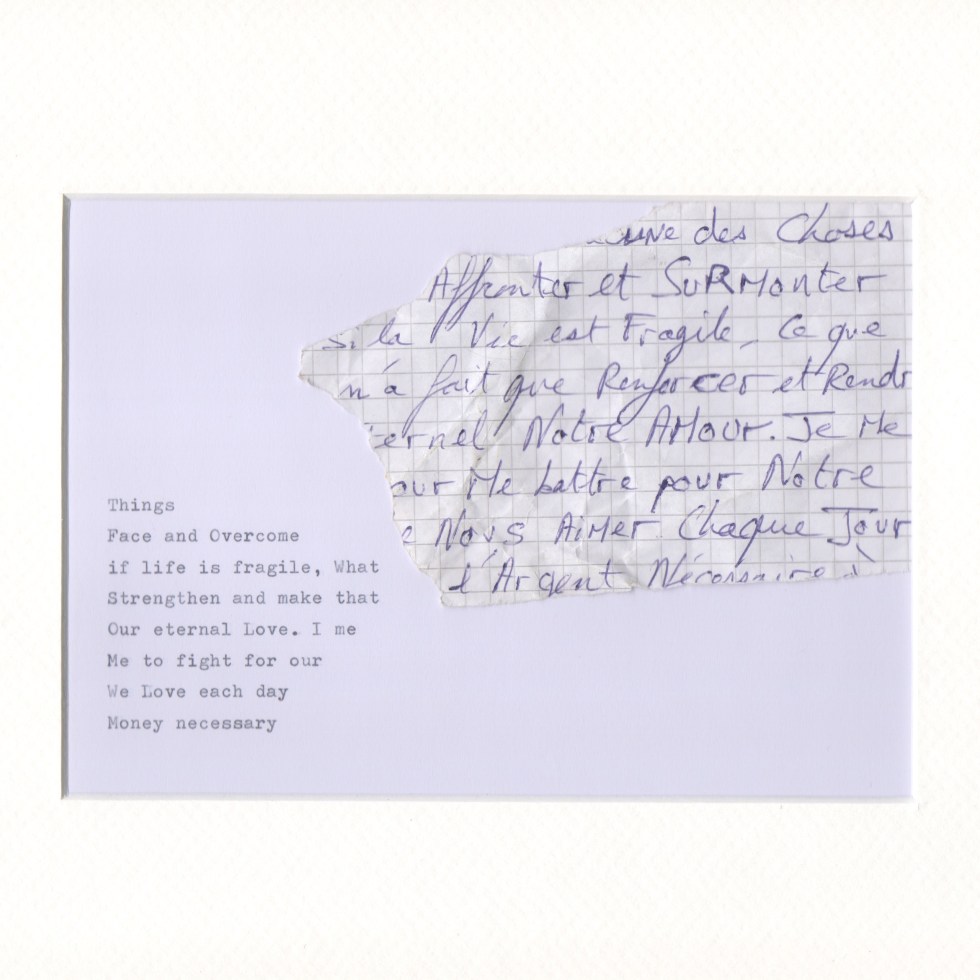 des Choses
Affronter et SuRMonter
si la Vie est Fragile, Ce que
n'a fait que Renforcer et Rendr
ternel Notre AMour. Je Me
our Me battre pour Notre
e Nous AiMer Chaque Jour
l'Argent Nécessaire à
Things
Face and Overcome
if life is fragile, What
Strengthen and make that
Our eternal Love. I me
Me to fight for our
We Love each day
Money necessary